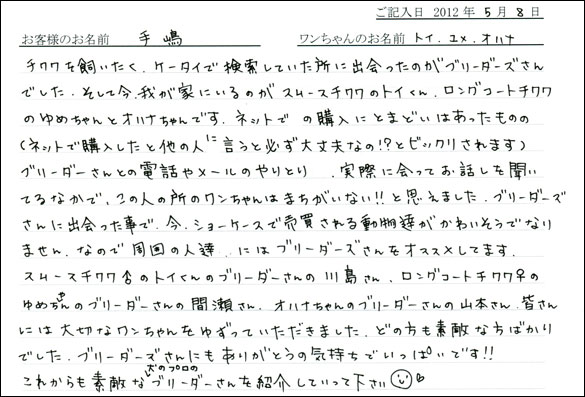 ご記入日 2012年 5月 8日
お客様のお名前 手嶋 ワンちゃんのお名前 トイ. ユメ. オハナ
チワワを飼いたく、ケータイで検索していた所に出会ったのがブリーダーズさん
でした. そして今、我が家にいるのがスムースチワワのトイくん、ロングコートチワワ
のゆめちゃんとオハナちゃんです. ネットで の購入にとまどいはあったものの
(ネットで購入したと他の人に言うと必ず大丈夫なの!?とビックリされます)
ブリーダーさんとの電話やメールのやりとり 、実際に会ってお話しを聞い
てるなかで、この人の所のワンちゃんはまちがいない!!と思えました. ブリーダーズ
さんに出会った事で、今、ショーケースで売買される動物達がかわいそうでなり
ません. なので周囲の人達 にはブリーダーズさんをオススメしてます.
スムースチワワ♂のトイくんのブリーダーさんの川島さん、ロングコートチワワ♀の
ゆめちゃんのブリーダーさんの間瀬さん、オハナちゃんのブリーダーさんの山本さん、皆さん
には大切なワンちゃんをゆずっていただきました. どの方も素敵な方ばかり
でした. ブリーダーズさんにもありがとうの気持ちでいっぱいです!!
これからも素敵な犬のプロのブリーダーさんを紹介していって下さい